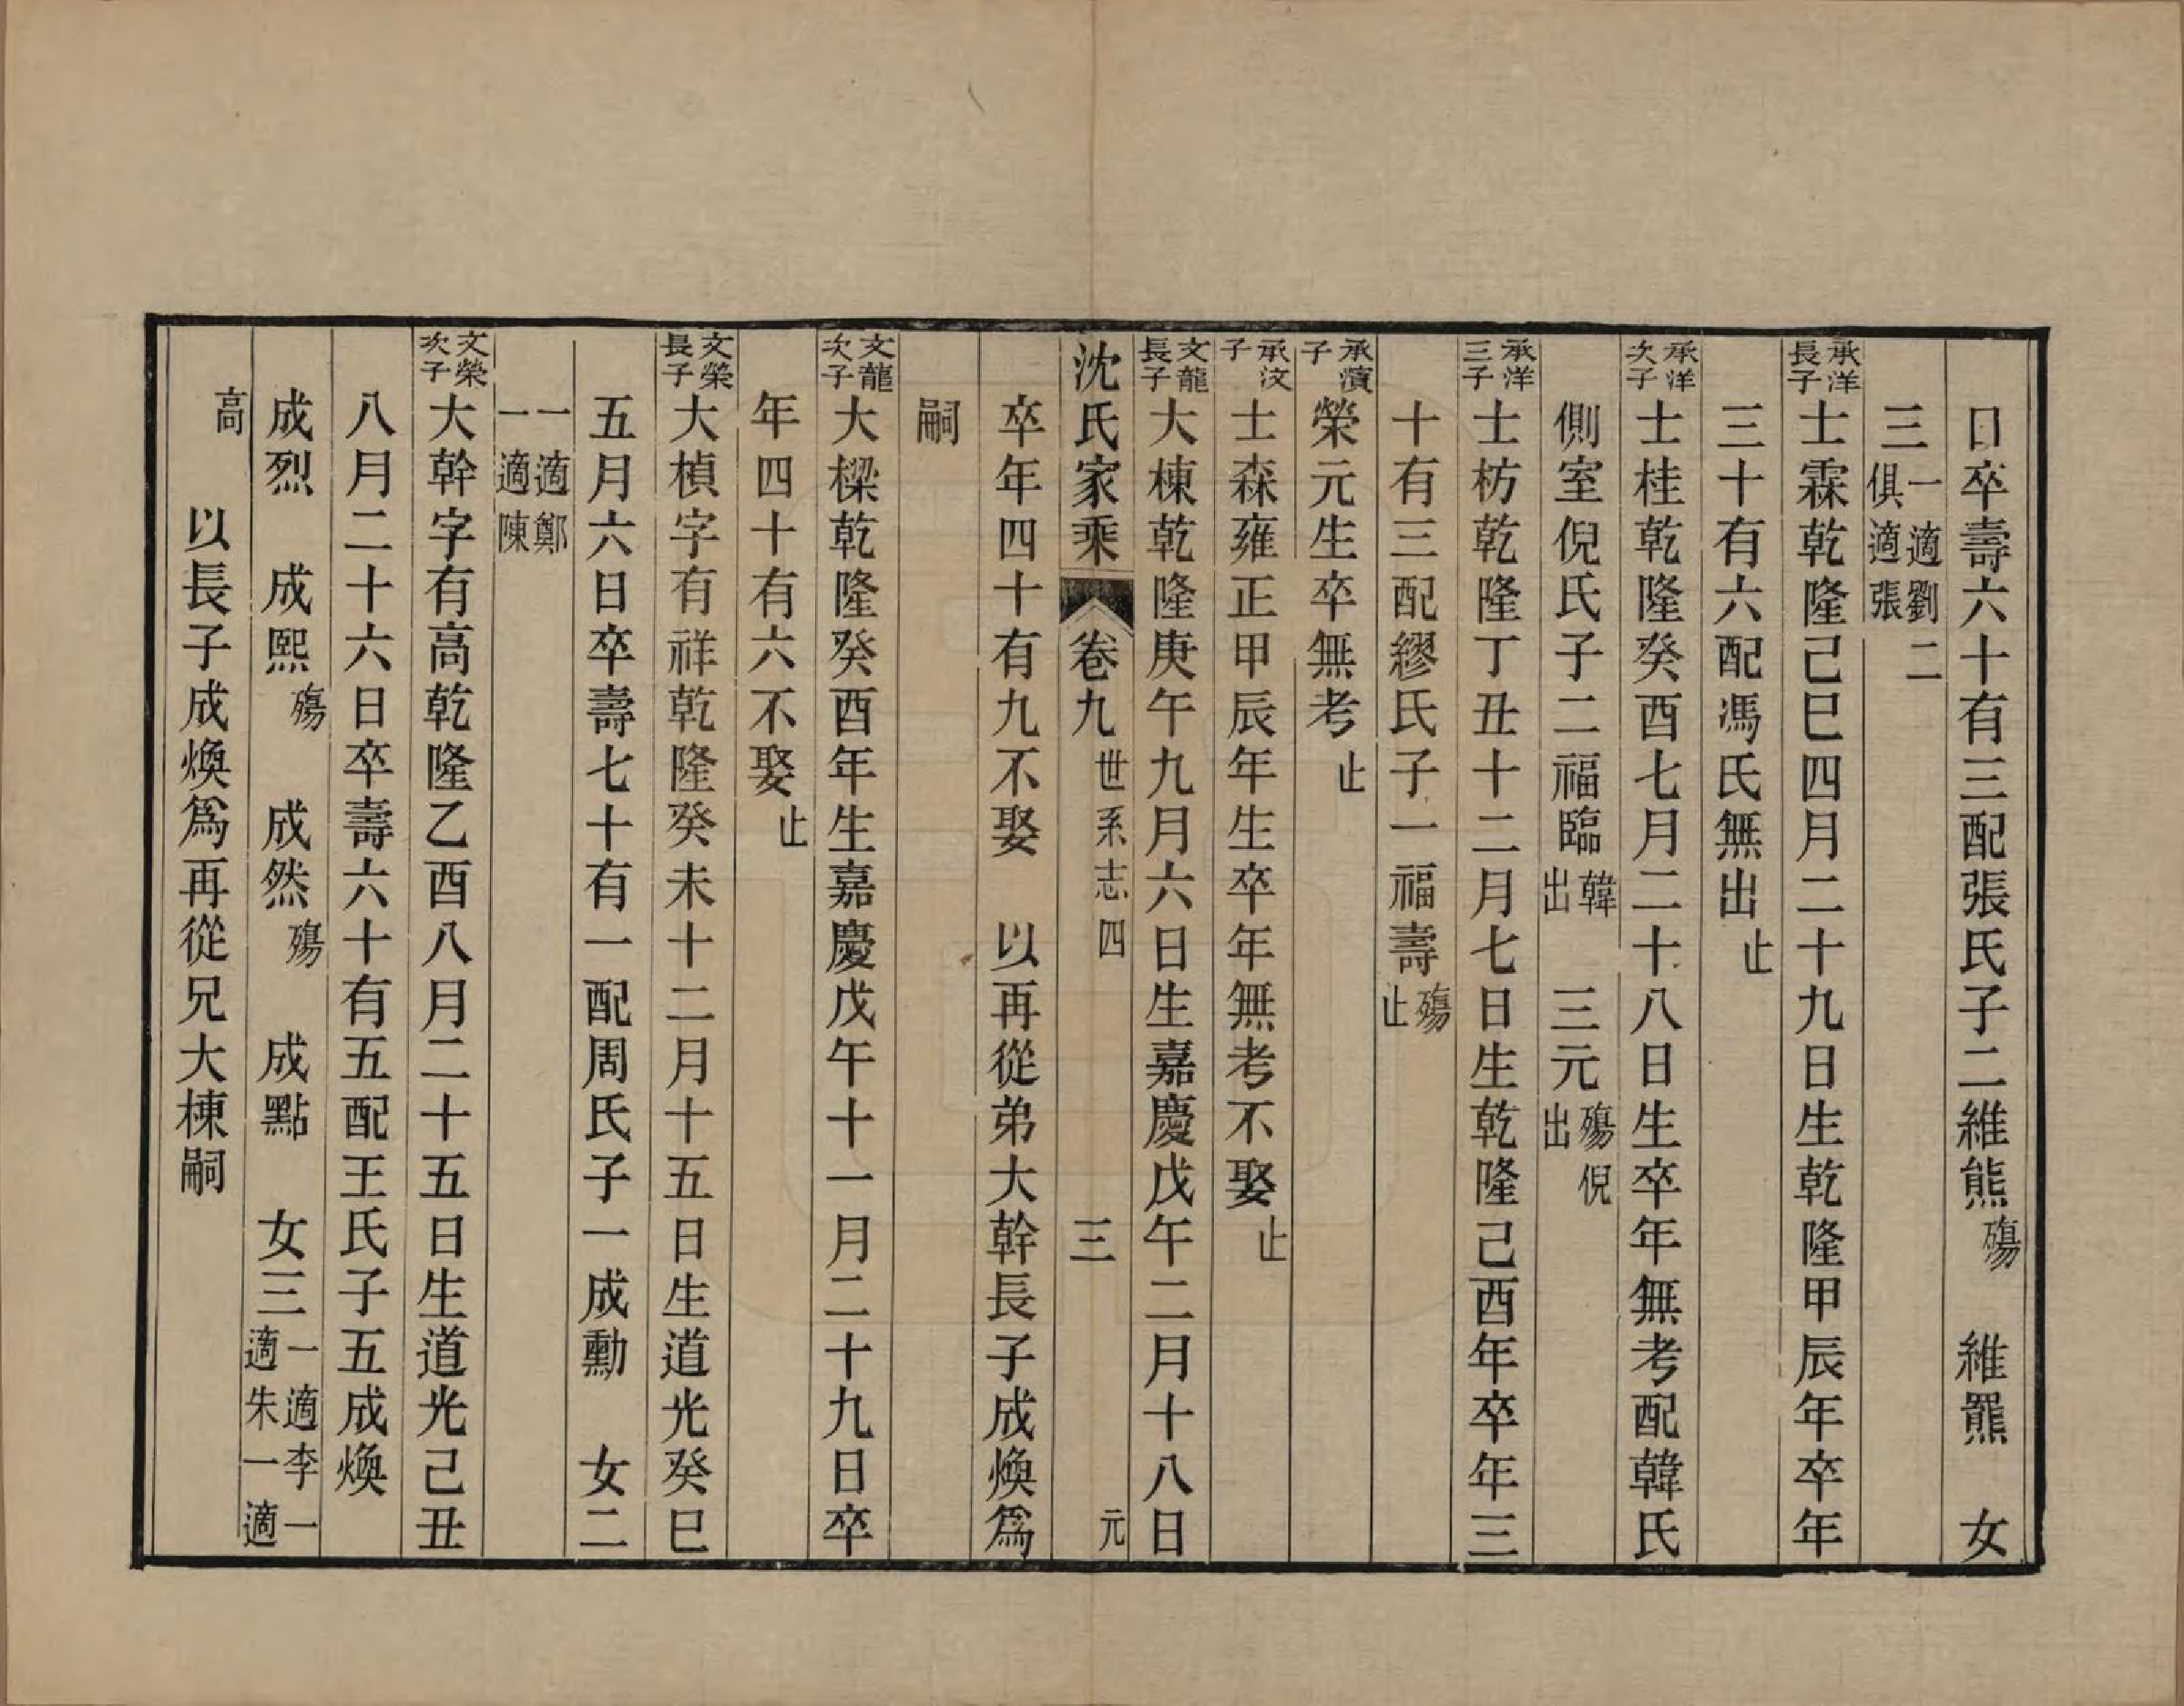 日卒壽六十有三配張氏子二維熊殤　維羆　女
三一適劉二俱適張
承洋長子士霖乾隆己巳四月二十九日生乾隆甲辰年卒年
三十有六配馮氏無出止
承洋次子士桂乾隆癸酉七月二十八日生卒年無考配韓氏
側室倪氏子二福臨韓出　三元殤倪出
承洋三子士枋乾隆丁丑十二月七日生乾隆己酉年卒年三
十有三配繆氏子一福壽殤止
承濱子榮元生卒無考止
承汶子士森雍正甲辰年生卒年無考不娶止
文龍長子大棟乾隆庚午九月六日生嘉慶戊午二月十八日
沈氏家乘　卷九世系志四　三　元
卒年四十有九不娶　以再從弟大幹長子成煥爲
嗣
文龍次子大樑乾隆癸酉年生嘉慶戊午十一月二十九日卒
年四十有六不娶止
文榮長子大楨字有祥乾隆癸未十二月十五日生道光癸巳
五月六日卒壽七十有一配周氏子一成勳　女二
一適鄭一適陳
文榮次子大幹字有高乾隆乙酉八月二十五日生道光己丑
八月二十六日卒壽六十有五配王氏子五成煥
成烈　成熙殤　成然殤　成點　女三一適李一適朱一適
高　以長子成煥爲再從兄大棟嗣